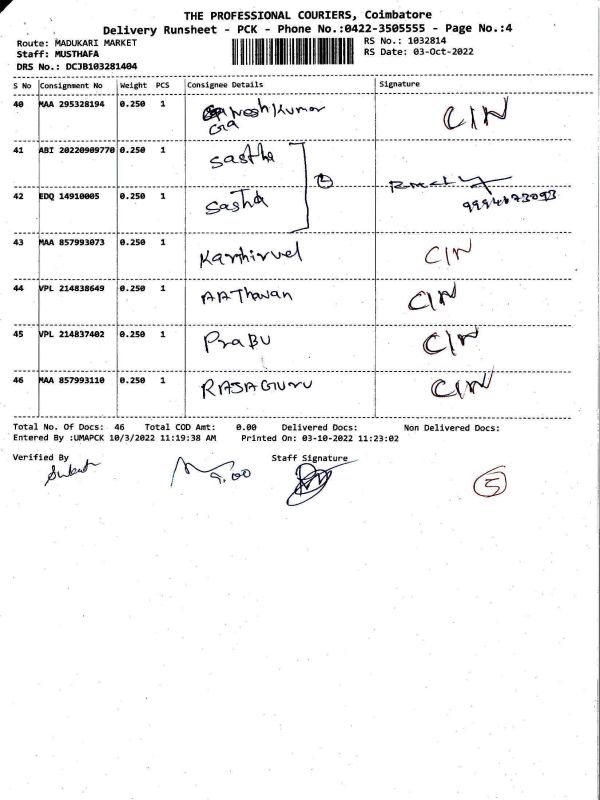 THE PROFESSIONAL COURIERS, Coimbatore
Delivery Runsheet - PCK - Phone No.:0422-3505555 - Page No.:4
Route: MADUKARI MARKET
RS No.: 1032814
Staff: MUSTHAFA
RS Date: 03-Oct-2022
DRS No.: DCJB103281404
S No Consignment No Weight PCS Consignee Details Signature
40 MAA 295328194 0.250 1 Ganeshkumar C/N
41 ABI 20220909770 0.250 1 Sastha
42 EDQ 14910005 0.250 1 Sastha
43 MAA 857993073 0.250 1 Karthirvel C/N
44 VPL 214838649 0.250 1 AAThavan C/N
45 VPL 214837402 0.250 1 PraBU C/N
46 MAA 857993110 0.250 1 RAJAGURU C/N
Total No. Of Docs: 46 Total COD Amt: 0.00 Delivered Docs: Non Delivered Docs:
Entered By :UMAPCK 10/3/2022 11:19:38 AM Printed On: 03-10-2022 11:23:02
Verified By Staff Signature
9.00
5